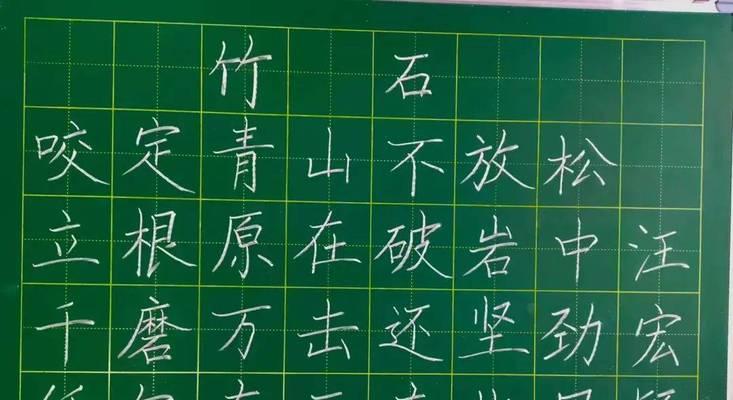 竹石
咬定青山不放松
立根原在破岩中汪
千磨万击还坚劲宏